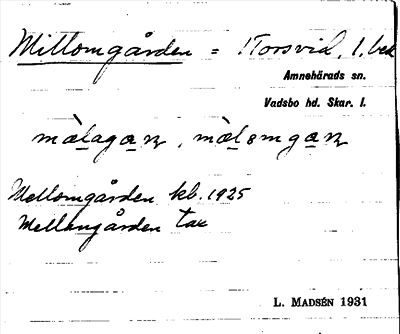 Millomgården = Torsvid, 1.
Amnehärads sn.
Vadsbo hd. Skar. l.
Mellomgården kb. 1925
Mellangården tax
L. MADSÉN 1931